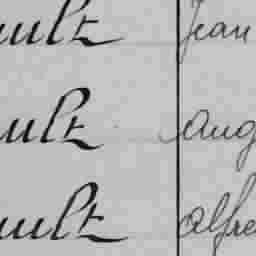 ault Jean
ault Aug
ault Alfre